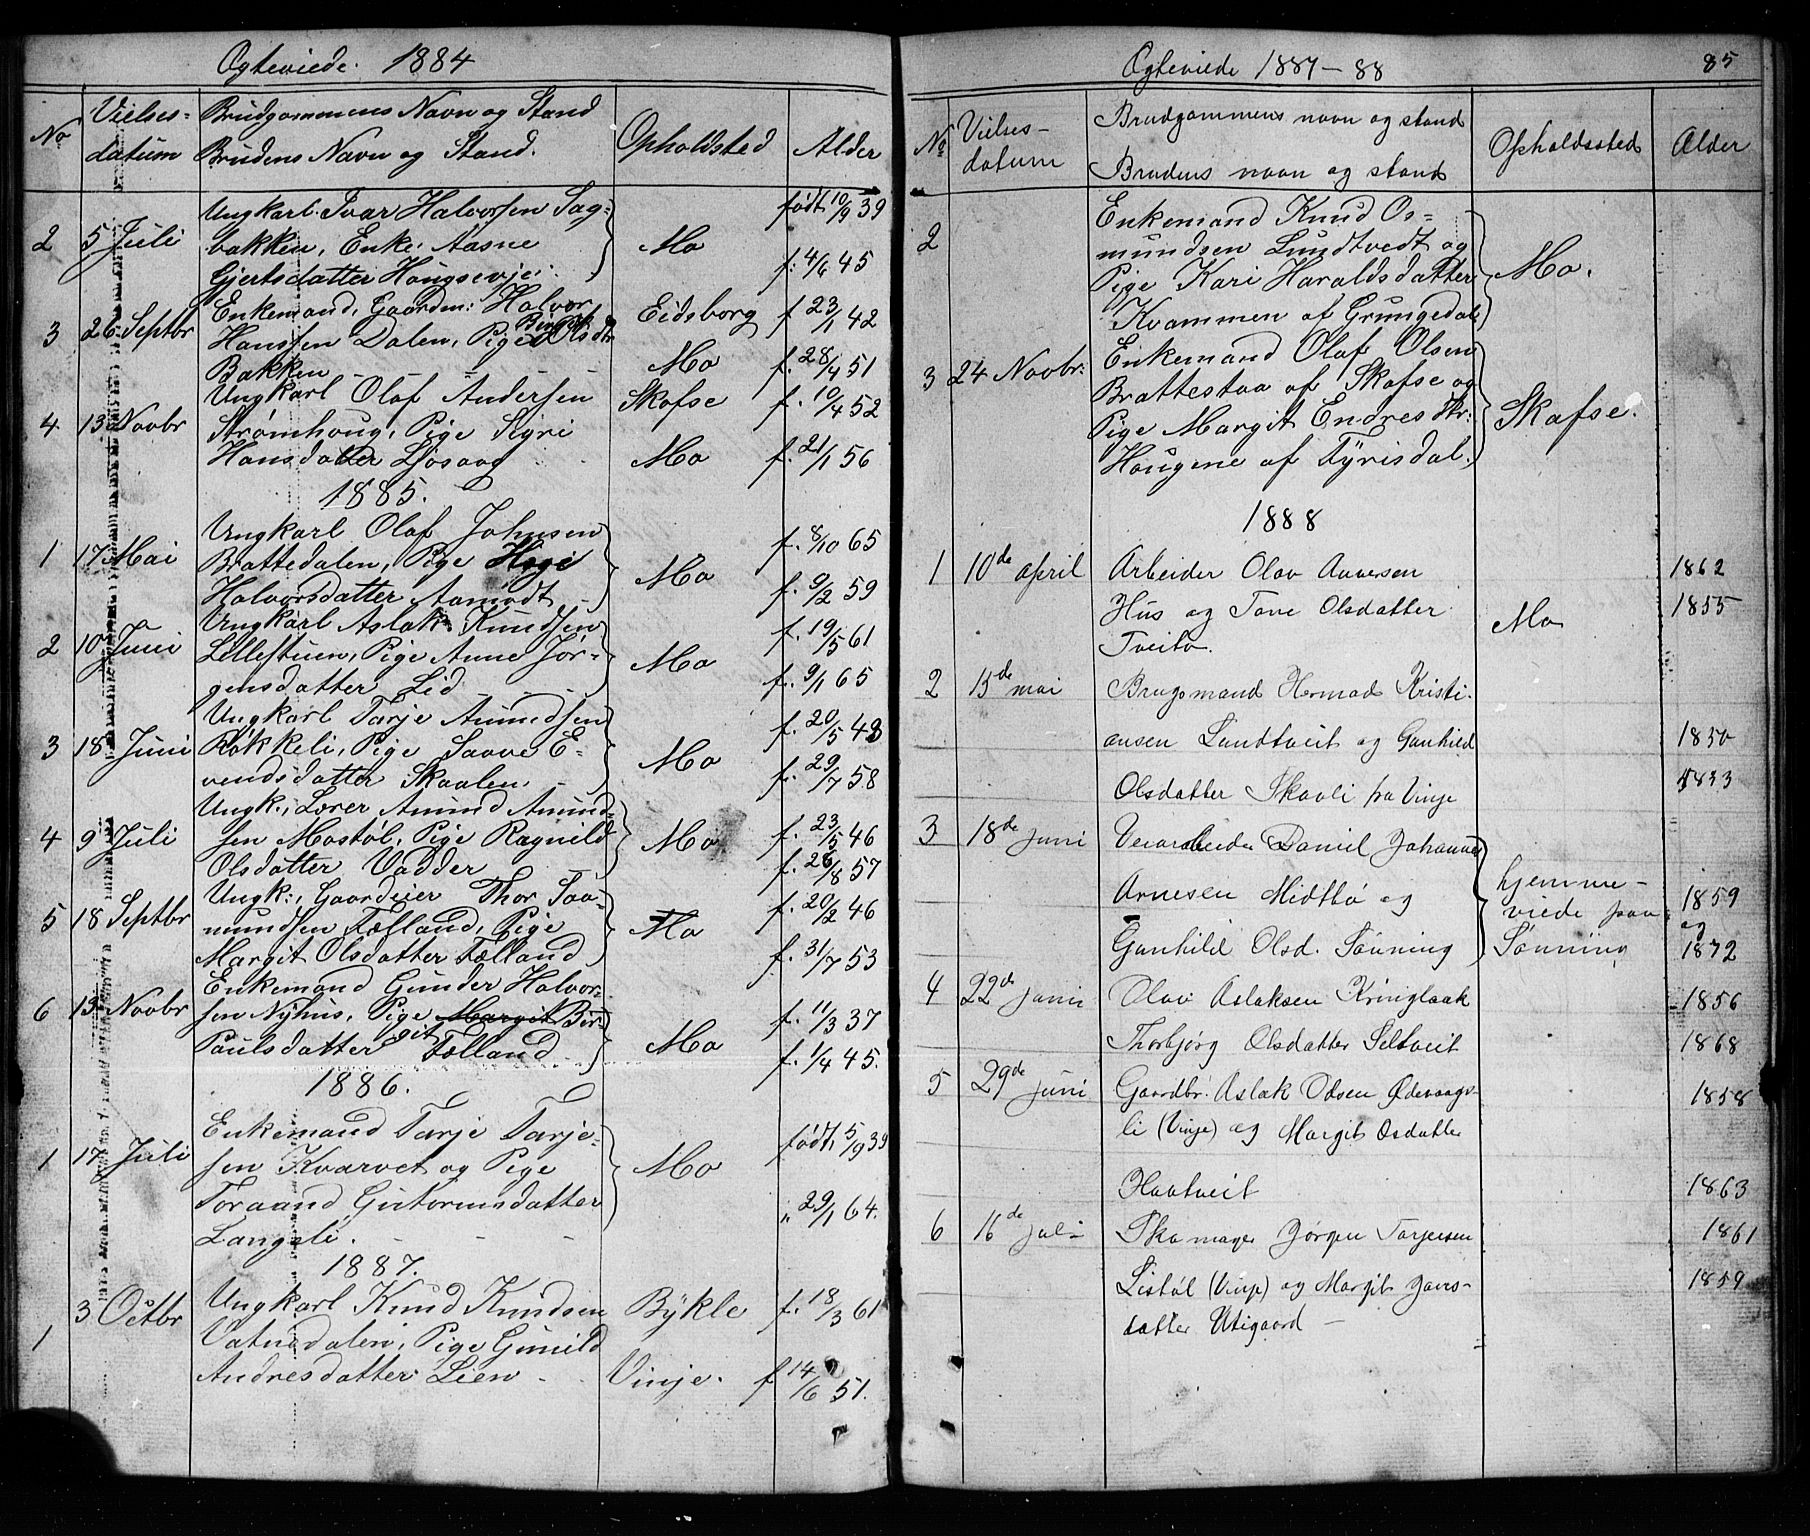 Ogteviede. 1884
No Vielses-datum Brudgommens Navn og Stand Opholdsted Alder
Brudens Navn og Stand.
Ungkarl. Ivar Halvorsen Sag- født 10/9 39
2 5 Juli bakken, Enke Aasne Mo
Gjertsdatter Hougsevje. f. 4/6 45
Enkemand, Gaardm: Halvor Eidsborg f 23/1 42
3 26 Septbr Hanssen Dalen, Pige Olsdtr
Bakken Mo f. 28/4 51
Ungkarl Olaf Andersen Skafse f. 10/4 52
4 13 Novbr Strømhoug, Pige Sigri
Hansdatter Ljosaag Mo f. 21/1 56
1885.
Ungkarl Olaf Johnsen f. 8/10 65
1 17 Mai Brattedalen, Pige Hege Mo
Halvorsdatter Aamodt f. 9/2 59
Ungkarl Aslak Knudsen f. 19/5 61
2 10 Juni Lillestuen, Pige Anne Jør- Mo
gensdatter Lid f. 9/1 65
Ungkarl Tarje Amundsen f. 20/5 48
3 18 Juni Røkkeli, Pige Saave E- Mo
vendsdatter Skaalen, f. 29/7 58
Ungk., Lærer Amund Amund-
4 9 Juli sen Mostøl, Pige Ragnild Mo f. 23/5 46
Olsdatter Vadder f. 26/8 57
Ungk:, Gaardeier Thor Saa- f. 20/2 46
5 18 Septbr mundsen Felland, Pige Mo
Margit Olsdatter Felland f. 31/7 53
Enkemand Gunder Halvor-
6 13 Novbr sen Nyhus, Pige Margit Bir- f. 11/3 37
git
Paulsdatter Felland Mo f. 1/4 45.
1886.
Enkemand Tarje Tarje- født 5/9 39
1 17 Juli sen Kvarvet og Pige Mo
Toraand Gutormsdatter „ 29/1 64.
Langeli.
1887.
3 Octbr Ungkarl Knud Knudsen Bykle f. 18/3 61
1 Vatnedalen, Pige Gunild
Andresdatter Lien Vinje. f 14/6 51.
Ogteviede 1887-88 85
No Vielses-datum Brudgommens navn og stand Opholdssted Alder
Brudens navn og stand
Enkemand Knud Os-
2 mundsen Lundtvedt og Mo.
Pige Kari Haraldsdatter
Kvammen af Grungedal
Enkemand Olaf Olsen
3 24 Novbr: Brattestaa af Skafse og Skafse.
Pige Margit Endresdtr:
Haugene af Tyrisdal.
1888
1 10de april Arbeider Olav Aanesen 1862
Hus og Tone Olsdatter Mo 1855
Tveito.
2 15de mai Brugsmand Hermod Kristi-
ansen Lundtveit og Gunhild 1850
Olsdatter Skavli fra Vinje 1833
3 18de juni Veiarbeider Daniel Johannes
Arnesen Midtbø og hjemme- 1859
viede paa og
Gunhild Olsd. Sønning Sønning 1872
4 22de juni Olav Aslaksen Kringlaak 1856
Thorbjørg Olsdatter Seltveit 1868
5 29de juni Gaardbr. Aslak Olsen Ødevaags- 1858
li (Vinje) og Margit Osdatter
Haatveit 1863
6 16de juli Skomager Jørgen Torjersen 1861
Listøl (Vinje) og Margit Jons- 1859
datter Utigaard